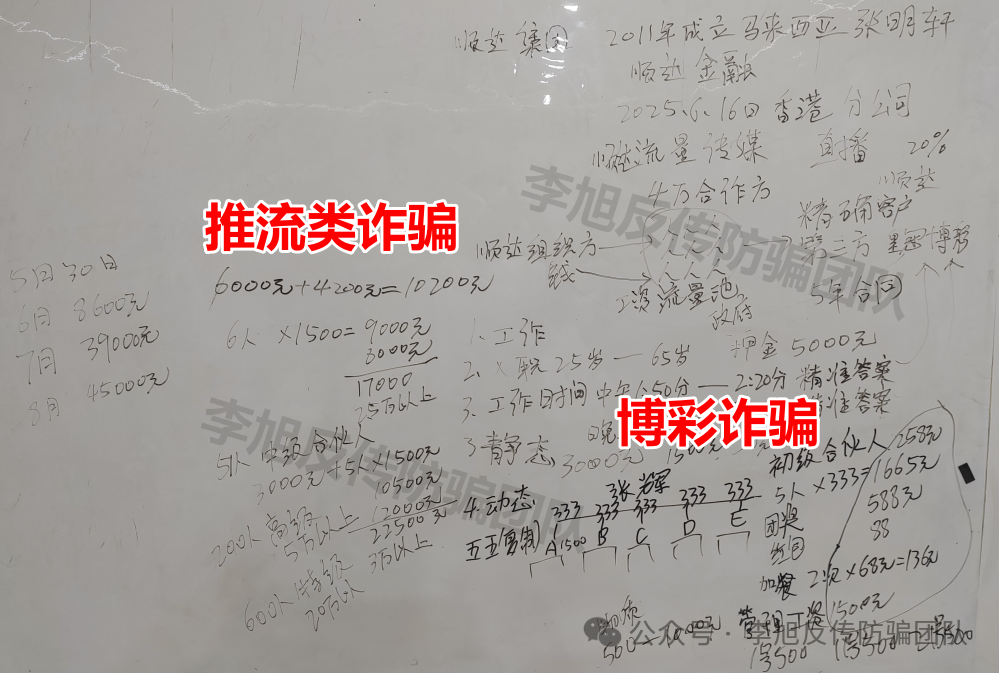 顺达集团
2011年成立马来西亚张明轩
顺达金融
2025.6.16日香港分公司
顺达流量传媒 直播 20%
4万合作方
顺达
精确客户
李旭反传防骗团队
推流类诈骗
顺达组织方
第三方
博彩
钱
5年合同
工资流量池
政府
5月30日
6月 8600元
7月 39000元
8月 45000元
6000元+4200元=10200元
6人×1500=9000元
8000元
17000
25万以上
1. 工作
2. 25岁—65岁 押金5000元
3. 工作日时间 中午1:50分—2:20分 精准答案
精准答案
博彩诈骗
3 静态 3000元
李旭反传防骗团队
5人 中级合伙人
3000元+5人×1500元
10500元
12000元
22500元
200人 高级
5万以上
3万以上
600人 特级
20万以
4.动态
张辉
333 333 333 333 333
五五复制
A1500 B C D E
初级合伙人 258元
5人×333=1665元
团奖 588元
红包 88
加餐 2次×68元=136元
管理工资1500元
1号500
公众号·李旭反传防骗团队